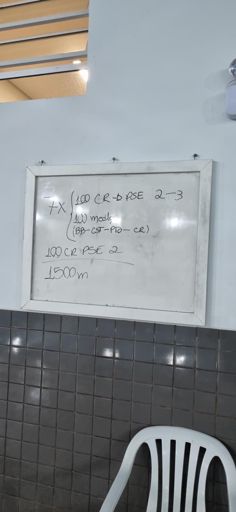 7x (100 CR-D PSE 2-3
100 medley
(BB-CST-PTO-CR)
100 CR PSE 2
1500m